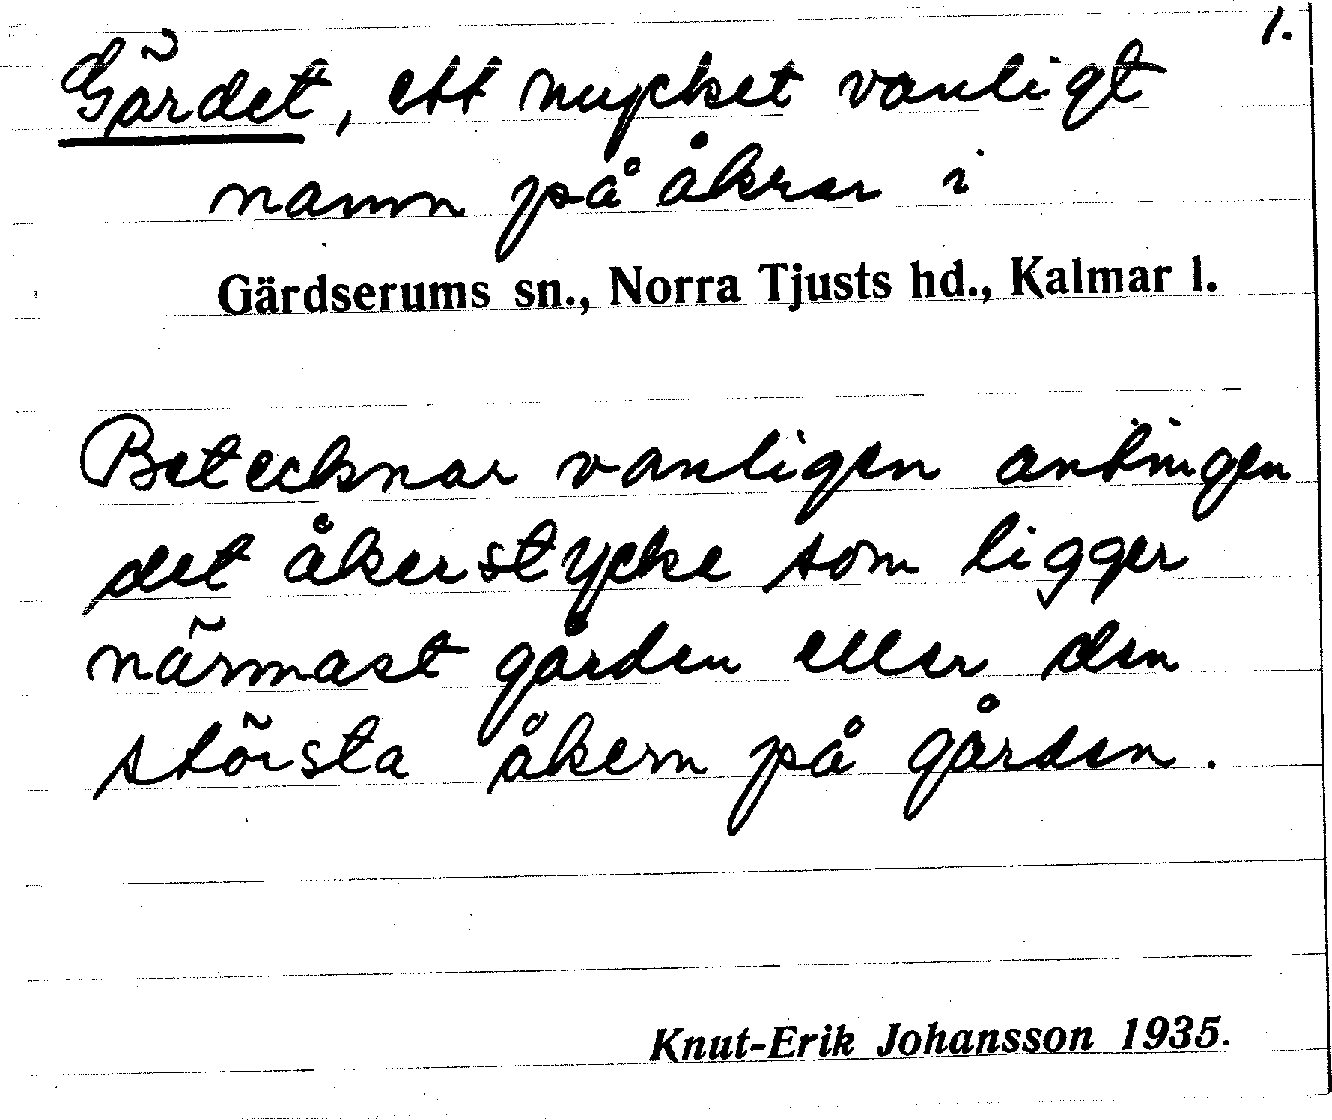 1.
Gärdet, ett mycket vanligt
namn på åkrar i
Gärdserums sn., Norra Tjusts hd., Kalmar l.
Betecknar vanligen antingen
det åkerstycke som ligger
närmast gården eller den
största åkern på gården.
Knut-Erik Johansson 1935.